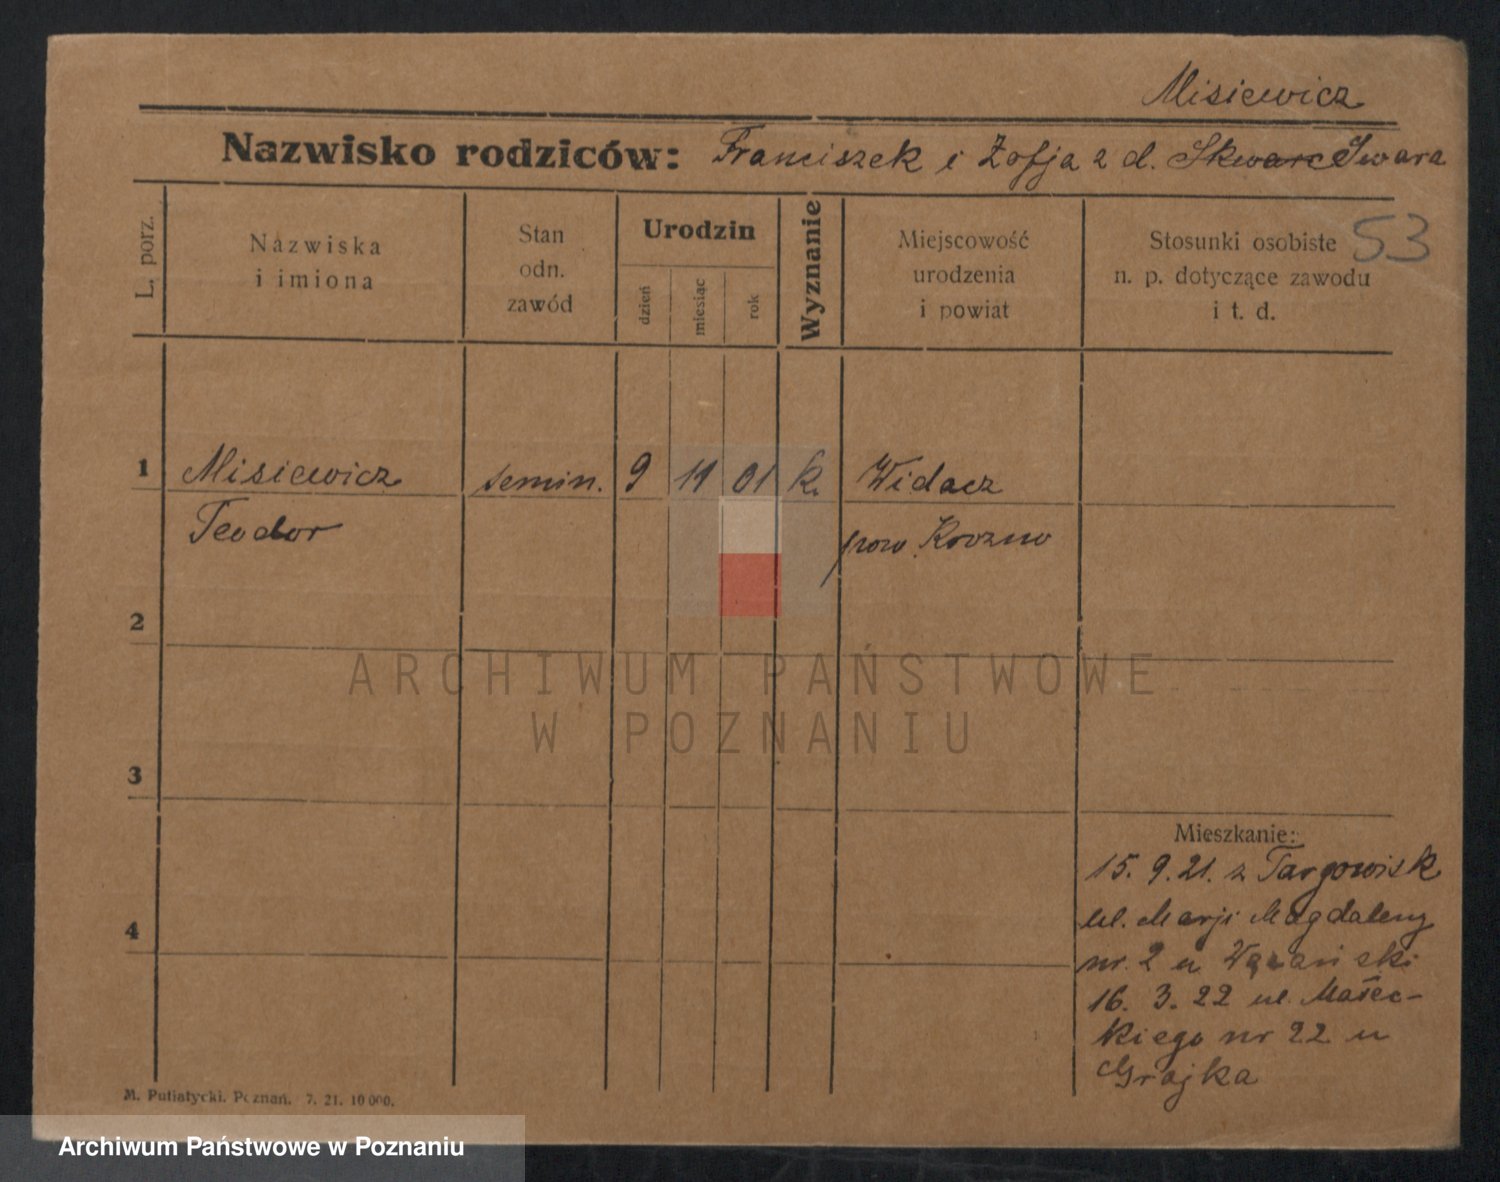 Misiewicz
Nazwisko rodziców: Franciszek i Zofja z d. Skwarc Swara
L. porz.
Nazwiska
i imiona
Stan
odn.
zawód
Urodzin
dzień
miesiąc
rok
Wyznanie
Miejscowość
urodzenia
i powiat
Stosunki osobiste
n. p. dotyczące zawodu
i t. d.
53
1 Misiewicz semin. 9 11 01 k. Widacz
Teodor pow. Krosno
2
3
4
Mieszkanie:
15. 9. 21. z Targowisk
ul. Marji Magdaleny
nr. 2 u
16. 3. 22 ul. Małec-
kiego nr 22 u
Grajka
M. Putiatycki. Poznań. 7. 21. 10 000.
ARCHIWUM PAŃSTWOWE
W POZNANIU
Archiwum Państwowe w Poznaniu